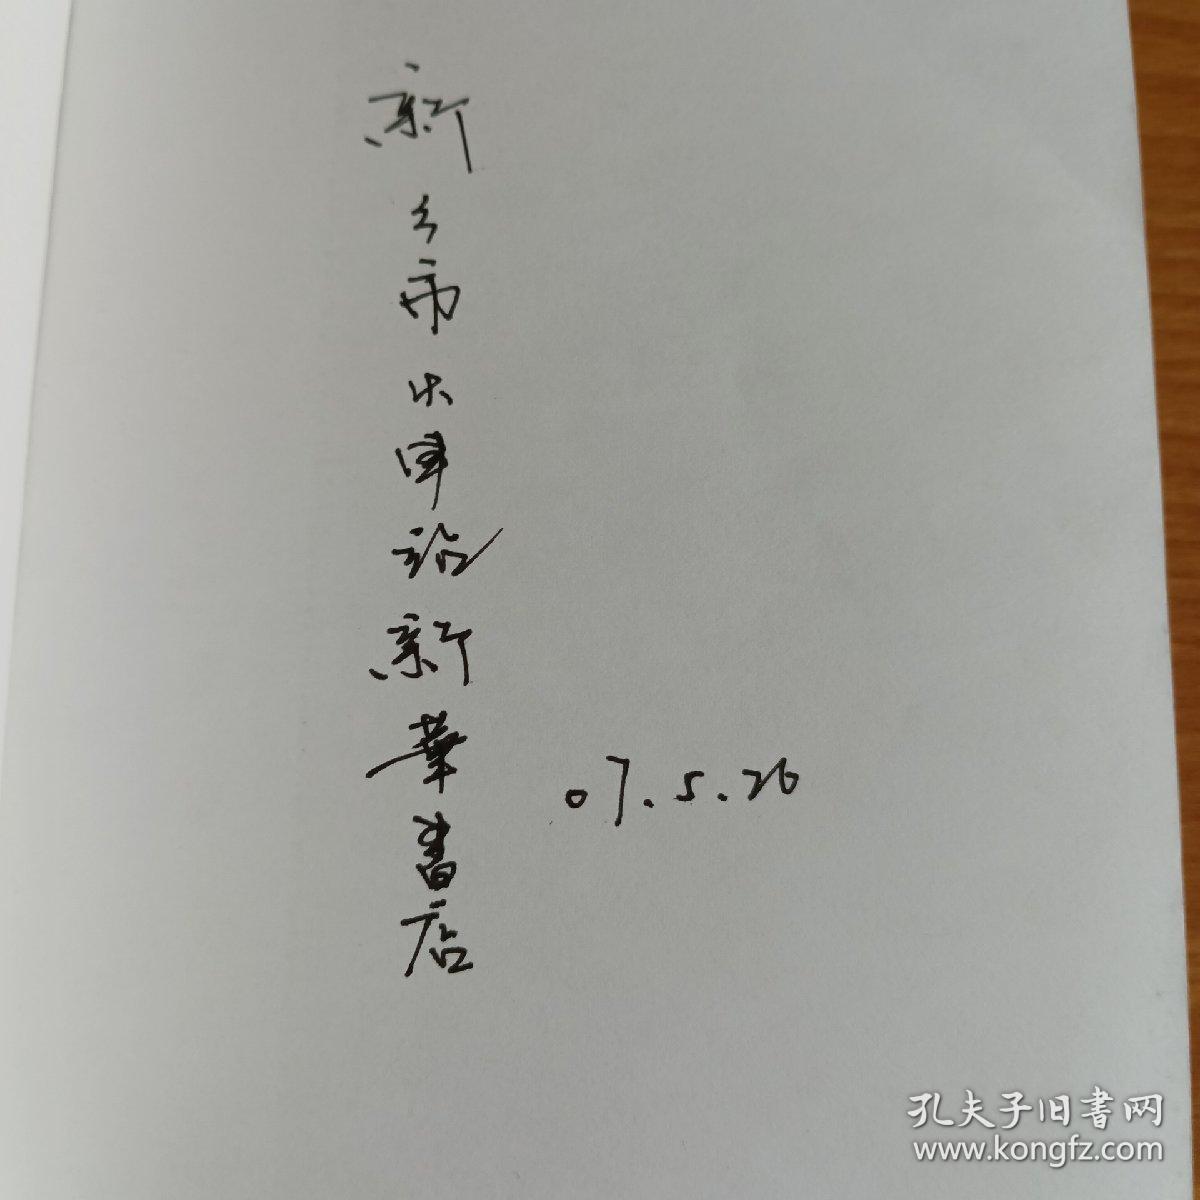 新乡市火車站新華書店
07.5.26
孔夫子旧書网
www.kongfz.com